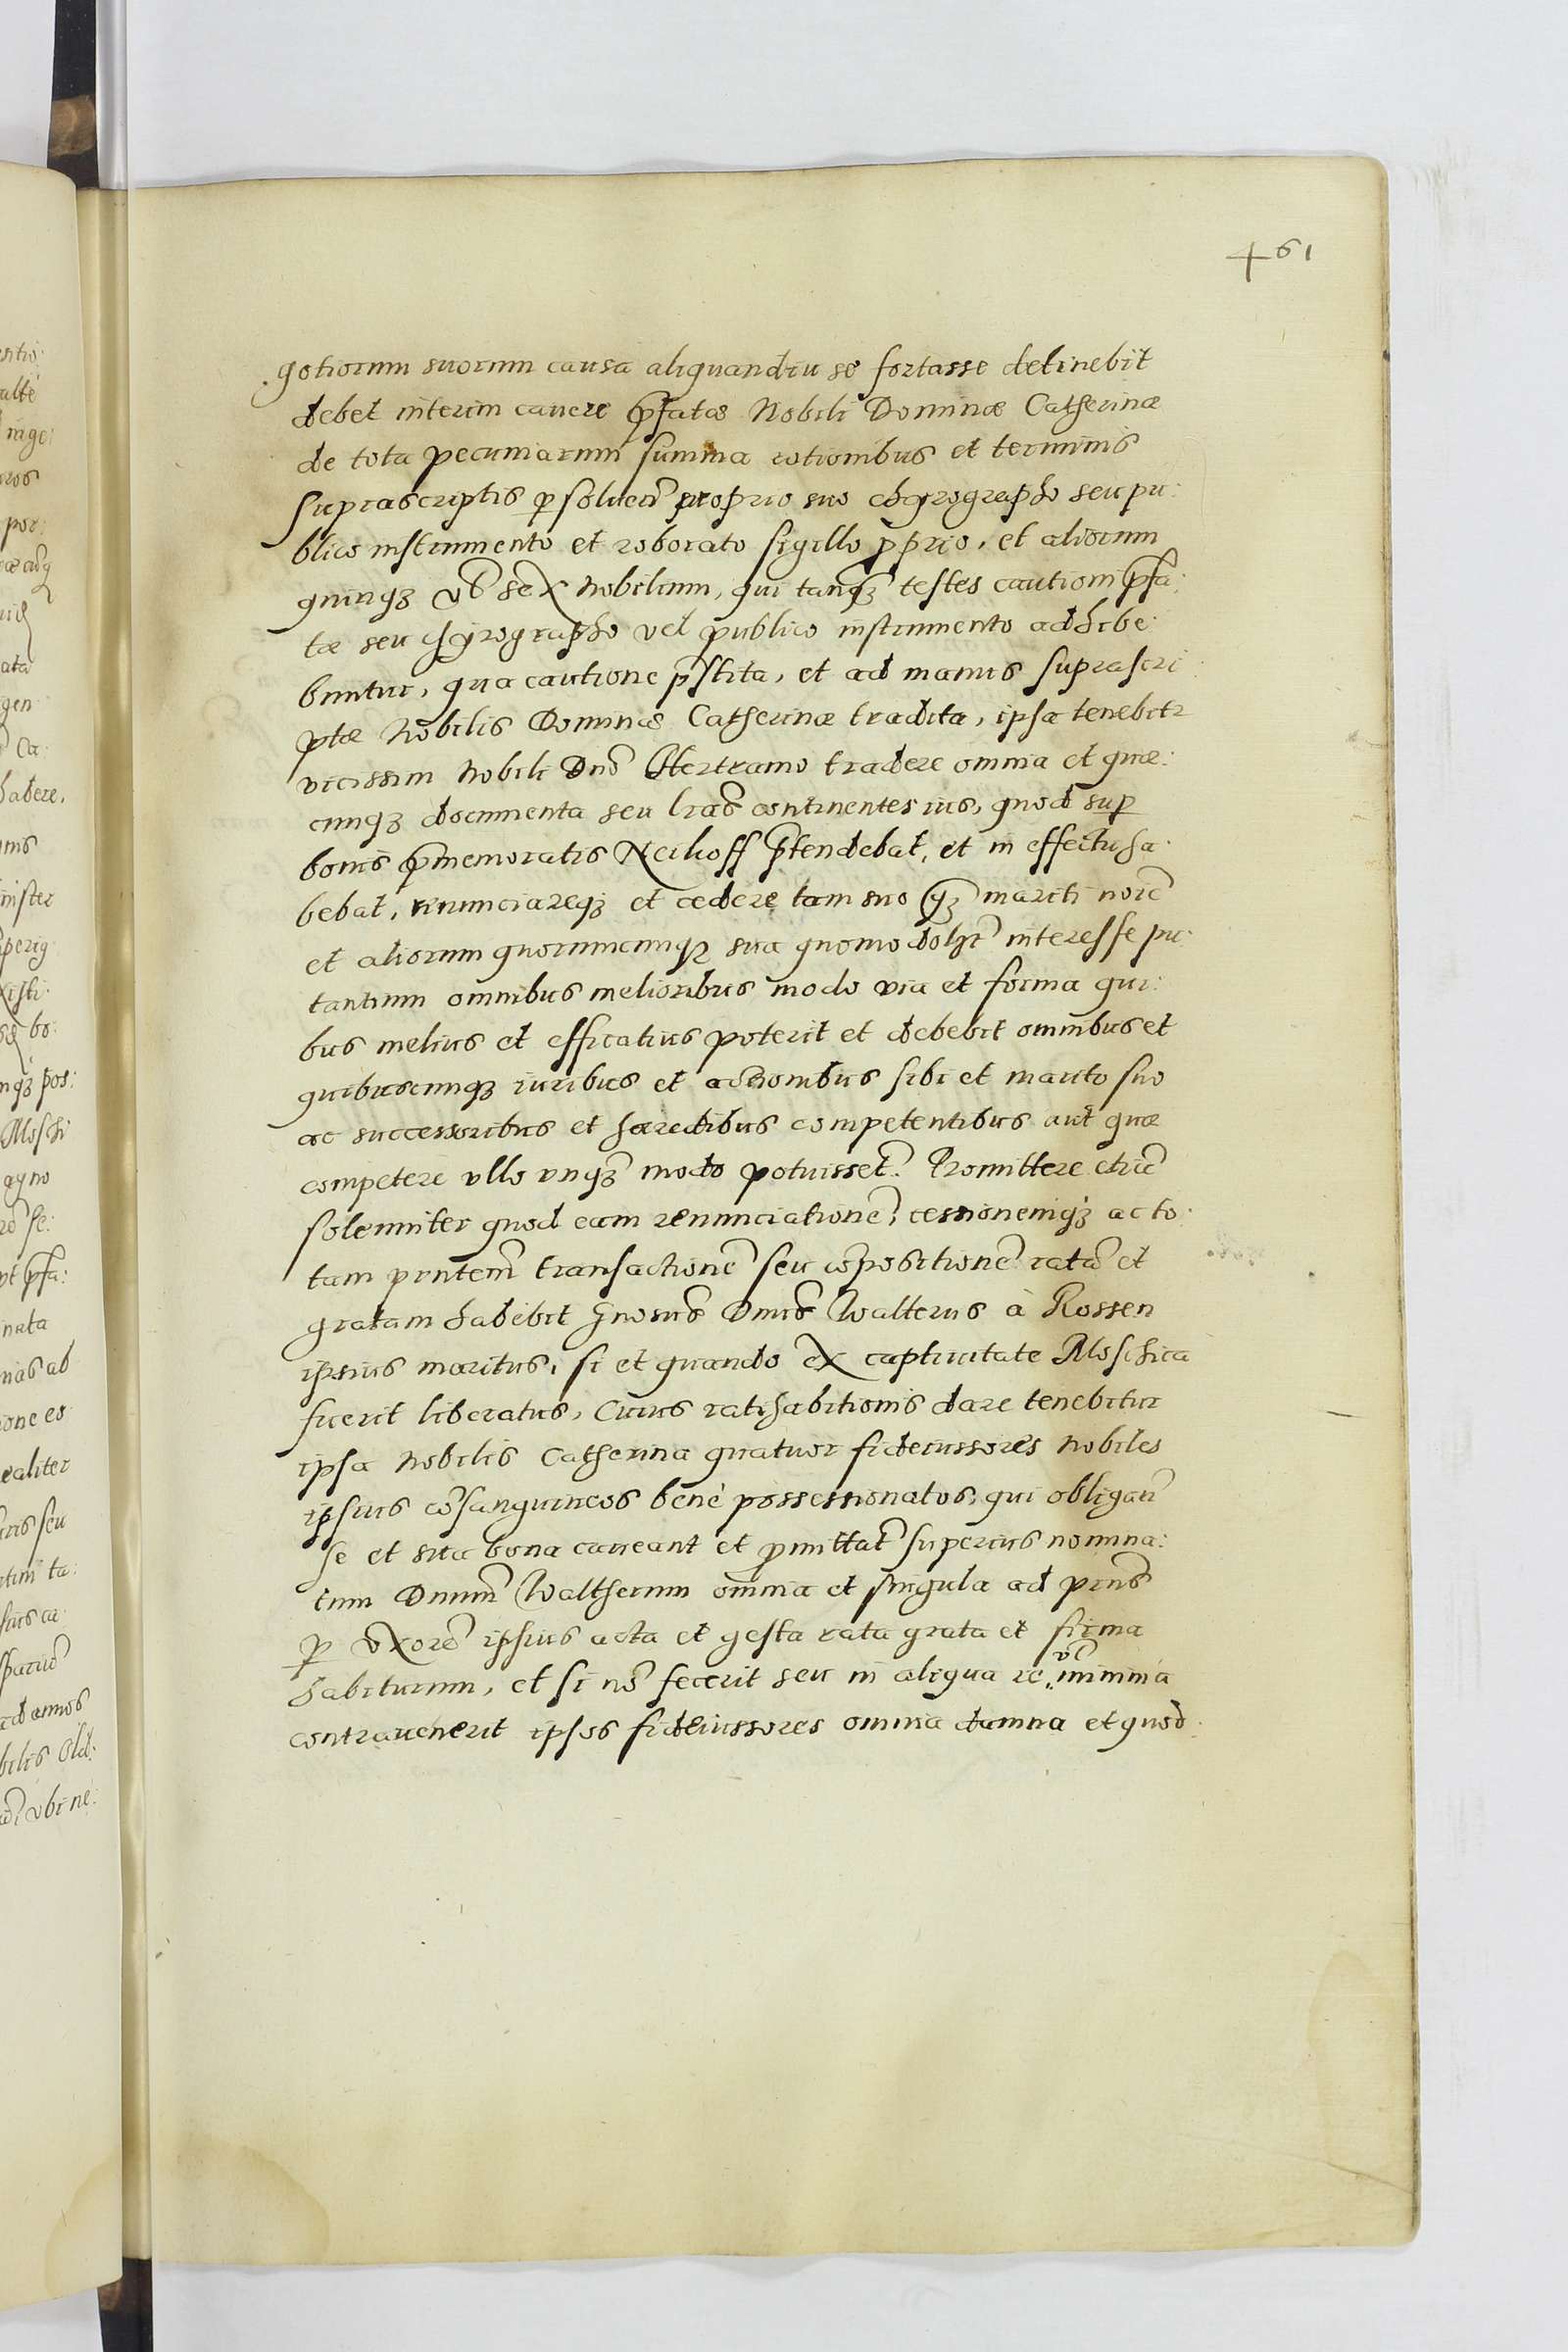 461
gotiorum suorum causa aliquandiu se fortasse detinebit
debet interim cavere p̄fatæ Nobili Dominæ Catherinæ
de tota pecuniarum summa rationibus et terminis
suprascriptis p solven̄ proprio suo chyrographo seu pu:
blico instrumento et roborato sigillo pprio, et aliorum
quinqʒ vĕ sex Nobilium, qui tanqʒ testes cautioni p̄fa:
tæ seu chyrographo vel publico instrumento adhibe:
buntur, qua cautione p̄stita, et ad manus suprascri:
ptæ Nobilis Dominæ Catherinæ tradita, ipsa tenebitr
vicissim Nobili Dnō Bertramo tradere omnia et quæ:
cunqʒ documenta seu lrās continentes ius, quod sup
bonis p̄memoratis Neihoff p̄tendebat, et in effectu ha:
bebat, renunciareqʒ et cedere tam suo qʒ mariti noīe
et aliorum quorumcunqʒ sua quomodolʒt interesse pu:
tantium omnibus melioribus modo via et forma qui:
bus melius et efficatius poterit et debebit omnibus et
quibuscunqʒ iuribus et actionibus sibi et marito suo
ac successoribus et hæredibus competentibus aut quæ
competere ullo unqʒ modo potuisset. Promittere etiā
solenniter quod eam renunciationē, cessionemqʒ ac to:
tam pntem̄ transactionē seu cōpositionē ratā et
gratam habebit gnosus Dnus Walterus à Rossen
ipsius maritus, si et quando ex captivitate Moschica
fuerit liberatus, Cuius ratihabitionis dare tenebitur
ipsa Nobilis Catherina quatuor fideiussores Nobiles
ipsius cōsanguineos bene possessionatos, qui obligan̄
se et sua bona caveant et pmittāt superius nomina:
tum Dnum̄ Waltherum omnia et singula ad pns
p uxorē ipsius acta et gesta rata grata et firma
habiturum, et si nō fecerit seu in aliqua re vĕ minima
contravenerit ipsos fideiussores omnia damna et quod: